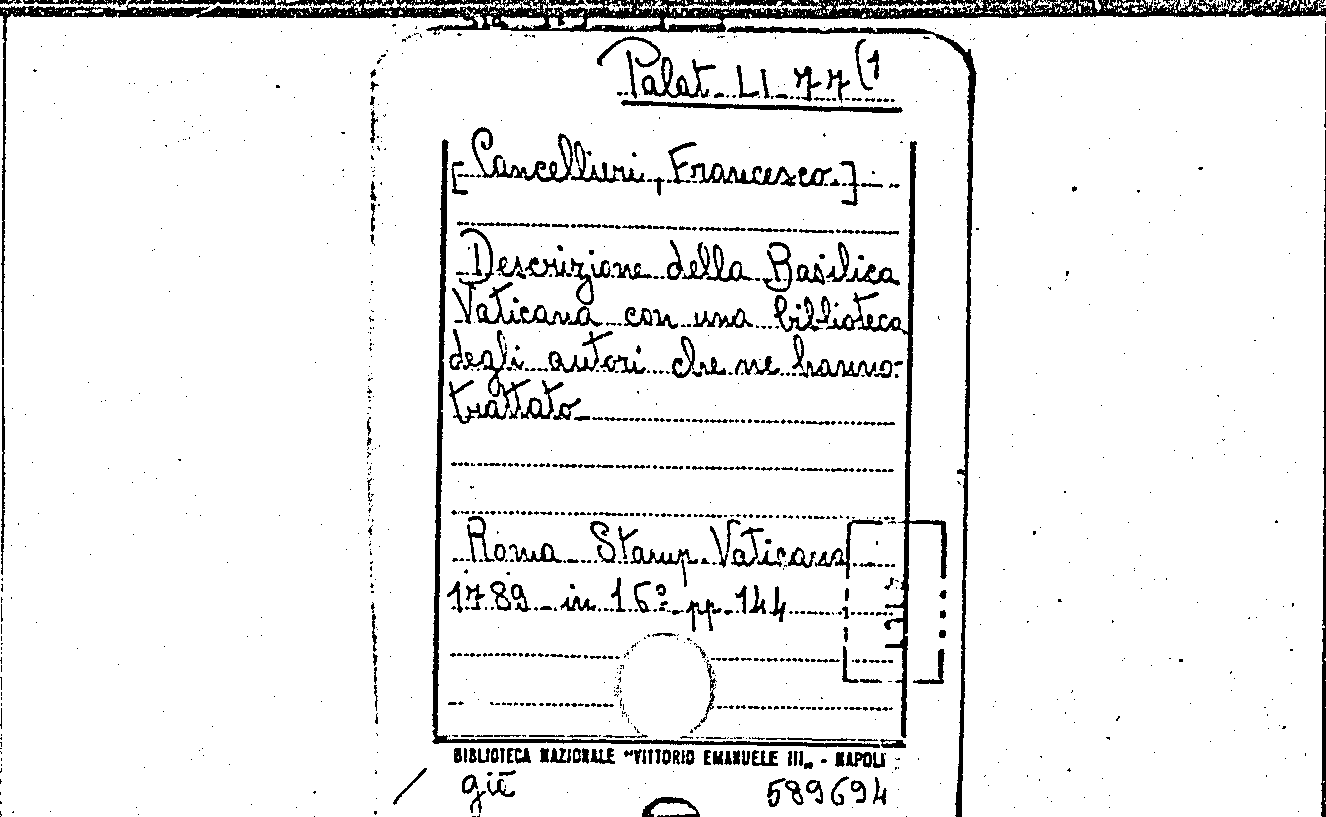 Palat. LI. 77(1
[Cancellieri, Francesco.]
Descrizione della Basilica
Vaticana con una biblioteca
degli autori che ne hanno
trattato
Roma Stamp. Vaticana
1789 in 16º pp. 144
BIBLIOTECA NAZIONALE "VITTORIO EMANUELE III„ - NAPOLI
già
589694